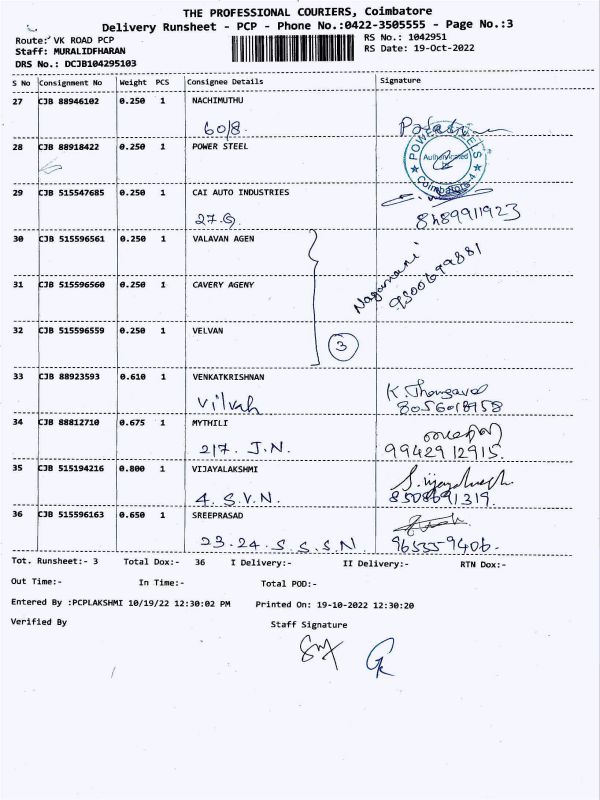 THE PROFESSIONAL COURIERS, Coimbatore
Delivery Runsheet - PCP - Phone No.:0422-3505555 - Page No.:3
Route: VK ROAD PCP
RS No.: 1042951
Staff: MURALIDFHARAN
RS Date: 19-Oct-2022
DRS No.: DCJB104295103
S No Consignment No Weight PCS Consignee Details Signature
27 CJB 88946102 0.250 1 NACHIMUTHU
60/8.
28 CJB 88918422 0.250 1 POWER STEEL
Authenticated
Coimbatore-4
29 CJB 515547685 0.250 1 CAI AUTO INDUSTRIES
27.G. 8489911923
30 CJB 515596561 0.250 1 VALAVAN AGEN
Nagamani
9500699881
31 CJB 515596560 0.250 1 CAVERY AGENY
32 CJB 515596559 0.250 1 VELVAN
3
33 CJB 88923593 0.610 1 VENKATKRISHNAN
K. Thangavel
Vilvah 8056018958
34 CJB 88812710 0.675 1 MYTHILI
217. J.N. 9942912915.
35 CJB 515194216 0.800 1 VIJAYALAKSHMI
4. S.V.N. 8508691319.
36 CJB 515596163 0.650 1 SREEPRASAD
23.24. S.S.S.N. 96555-9406.
Tot. Runsheet:- 3 Total Dox:- 36 I Delivery:- II Delivery:- RTN Dox:-
Out Time:- In Time:- Total POD:-
Entered By :PCPLAKSHMI 10/19/22 12:30:02 PM Printed On: 19-10-2022 12:30:20
Verified By Staff Signature